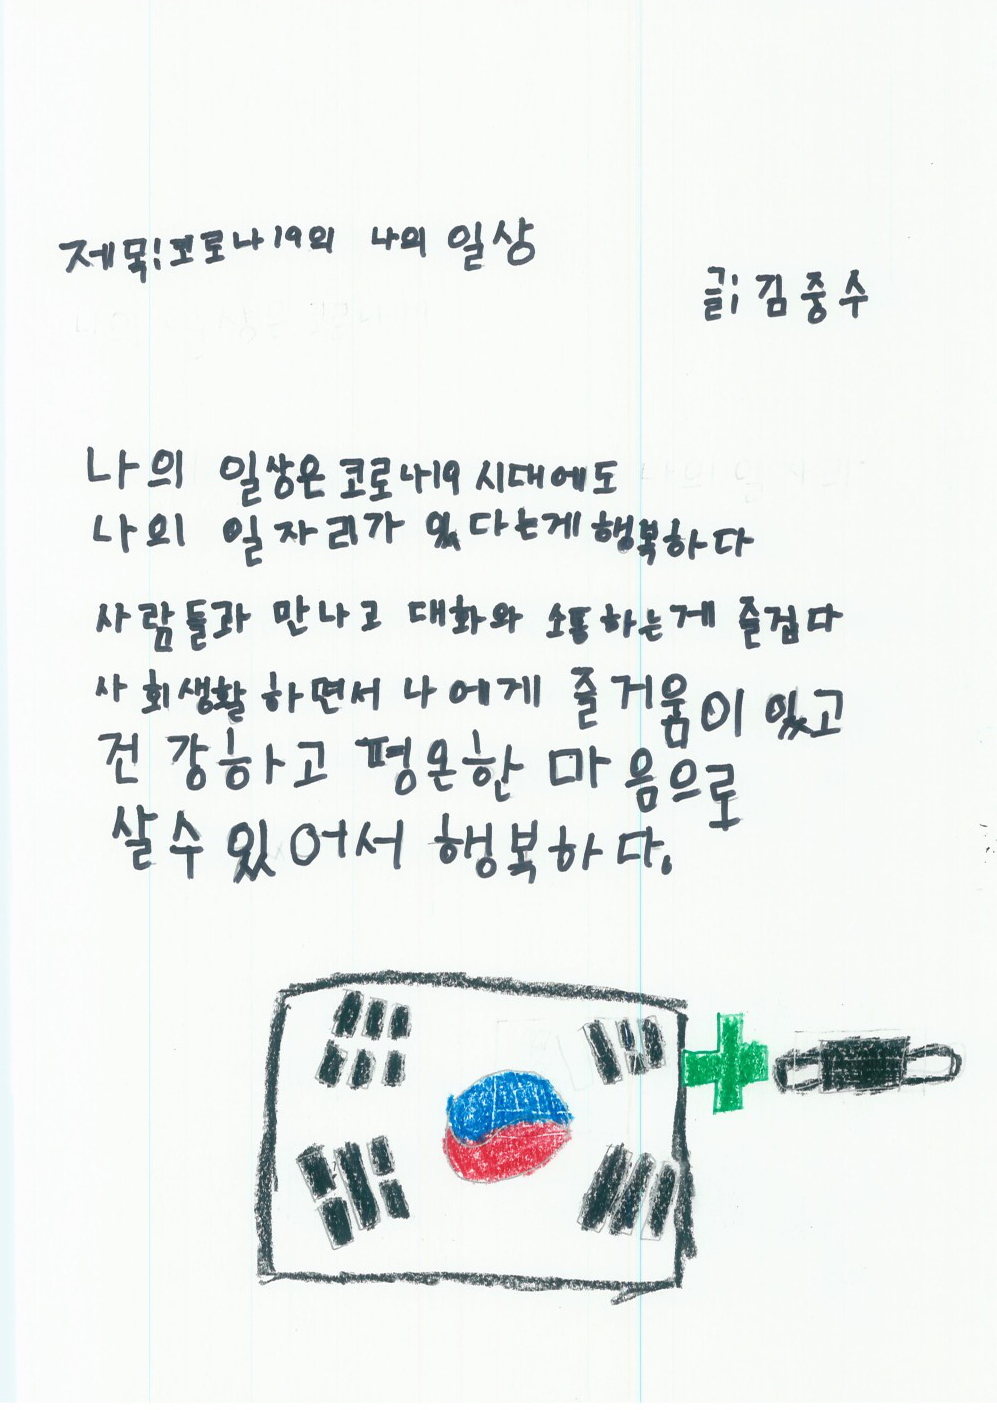 제목:코로나19의 나의 일상
글: 김중수
나의 일상은 코로나19 시대에도
나의 일자리가 있다는게 행복하다
사람들과 만나고 대화와 소통하는게 즐겁다
사회생활 하면서 나에게 즐거움이 있고
건강하고 평온한 마음으로
살수있어서 행복하다.